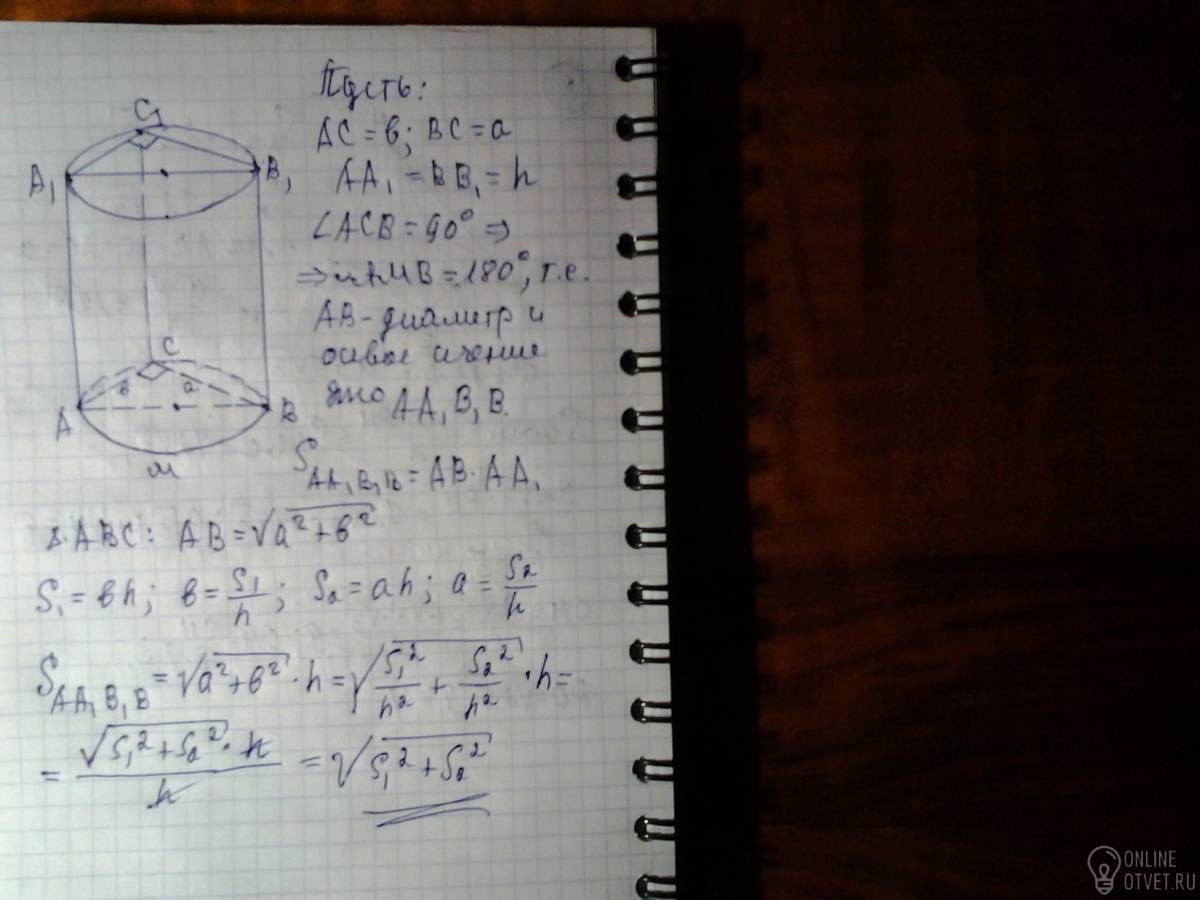 Пусть:
AC = в; BC = a
AA₁ = BB₁ = h
∠ACB = 90° ⇒
⇒ ◡AMB = 180°, т.е.
AB - диаметр и
осевое сечение
это AA₁B₁B.
S_{AA₁B₁B} = AB · AA₁
Δ ABC: AB = √(a² + в²)
S₁ = вh; в = S₁/h; S₂ = ah; a = S₂/h
S_{AA₁B₁B} = √(a² + в²) · h = √(S₁²/h² + S₂²/h²) · h =
= (√(S₁² + S₂²) · h)/h = √(S₁² + S₂²)
C₁
A₁
B₁
C
в
a
A
B
M
ONLINE
OTVET.RU